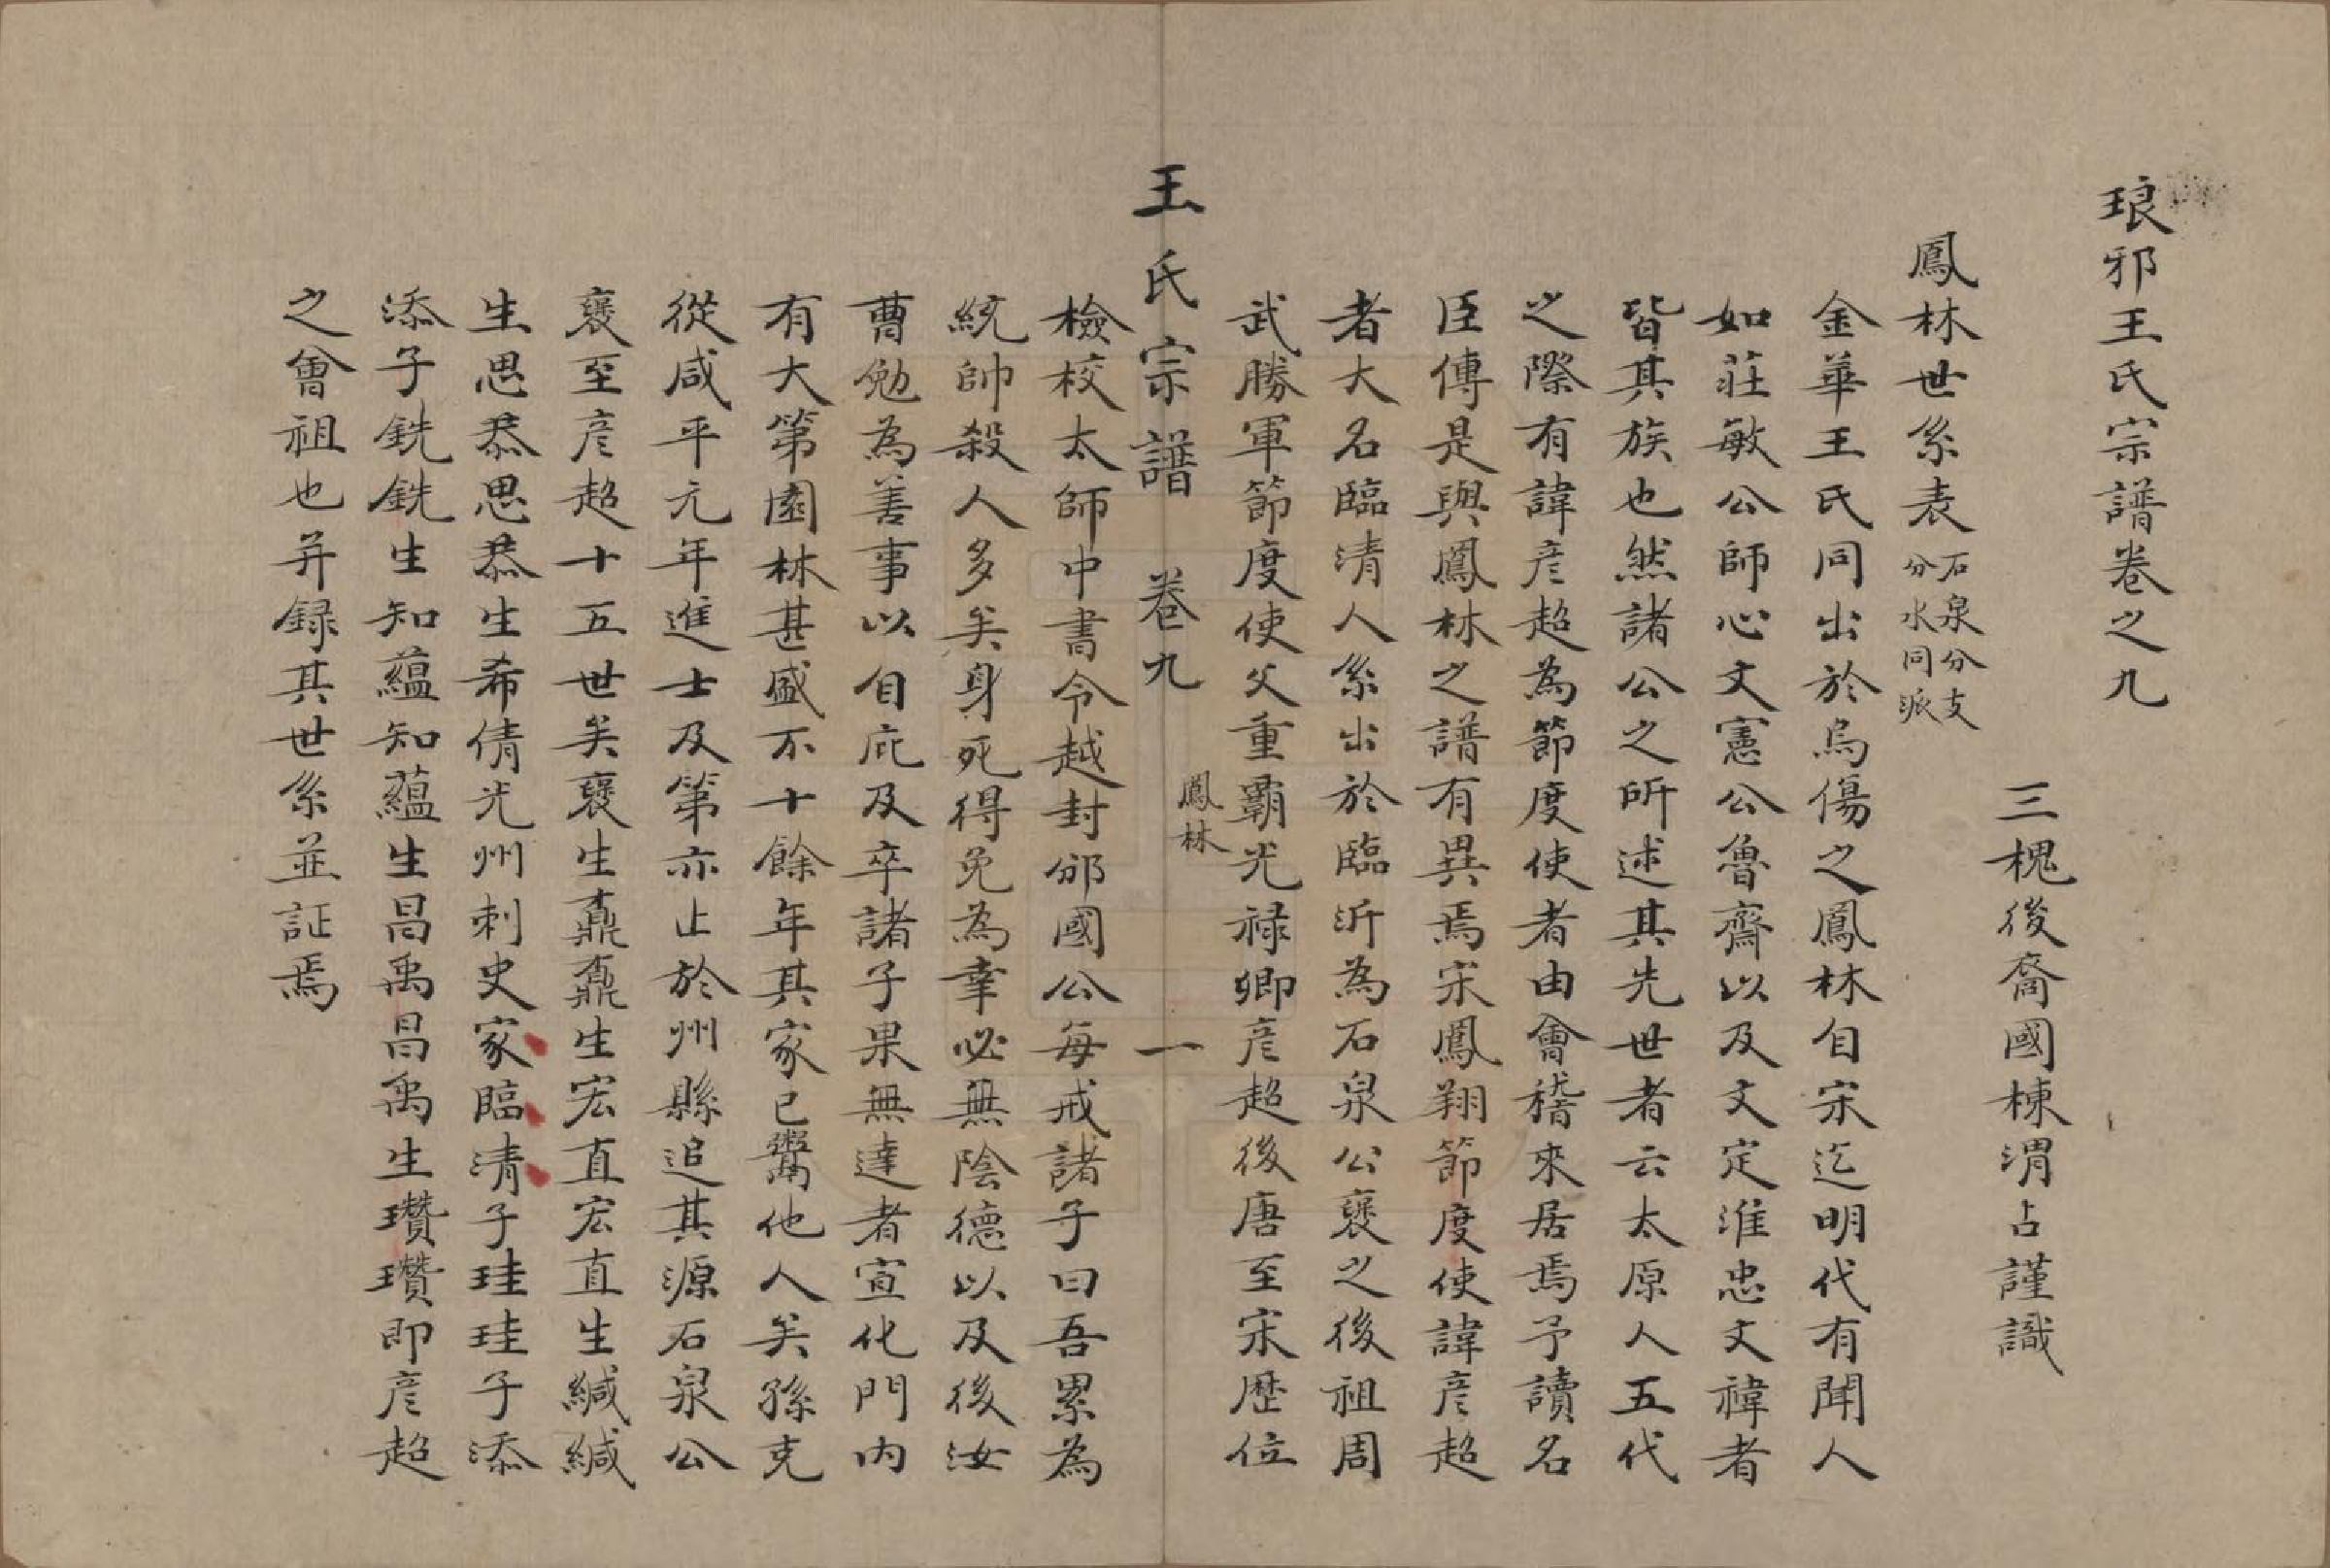 琅邪王氏宗譜卷之九
三槐後裔國棟渭占謹識
鳳林世系表
石泉分支
分水同派
金華王氏同出於烏傷之鳳林自宋迄明代有聞人
如莊敏公師心文憲公魯齋以及文定淮忠文禕者
皆其族也然諸公之所述其先世者云太原人五代
之際有諱彦超為節度使者由會稽來居焉予讀名
臣傳是與鳳林之譜有異焉宋鳳翔節度使諱彦超
者大名臨清人系出於臨沂為石泉公襃之後祖周
武勝軍節度使父重霸光禄卿彦超後唐至宋歷位
王氏宗譜 卷九 鳳林 一
檢校太師中書令越封邠國公每戒諸子曰吾累為
統帥殺人多矣身死得免為幸必無陰德以及後汝
曹勉為善事以自庇及卒諸子果無達者宣化門内
有大第園林甚盛不十餘年其家已鬻他人矣孫克
從咸平元年進士及第亦止於州縣追其源石泉公
襃至彦超十五世矣襃生鼒鼒生宏直宏直生緘緘
生思恭思恭生希倩光州刺史家臨清子珪珪子添
添子銑銑生知蘊知蘊生昌禹昌禹生瓚瓚即彦超
之曾祖也并録其世系並証焉